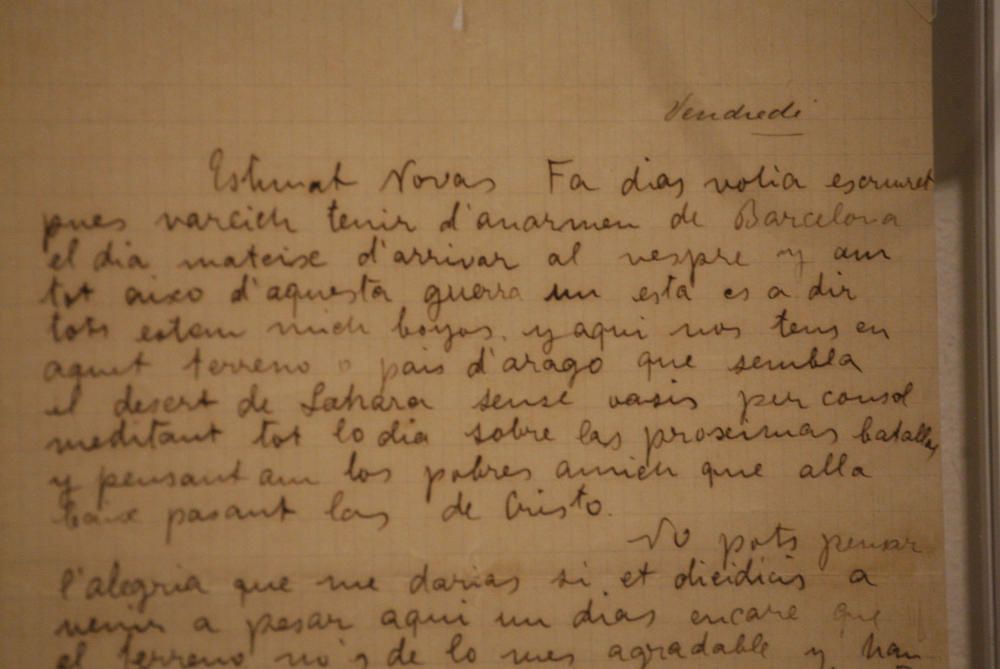 Vendredi
Estimat Novas Fa dias volia escriuret
pues varcich tenir d'anarmen de Barcelona
el dia mateixe d'arrivar al vespre y am
tot aixo d'aquesta guerra un esta es a dir
tots estem mich boyos. y aqui nos tens en
aquet terreno o pais d'arago que sembla
el desert de Sahara sense oasis per consol
meditant tot lo dia sobre las proximas batallas
y pensant am los pobres amich que alla
baix pasant las de Cristo.
No pots pensar
l'alegria que me darias si et dicidicis a
venir a pesar aqui un dias encare que
el terreno no's de lo mes agradable y han